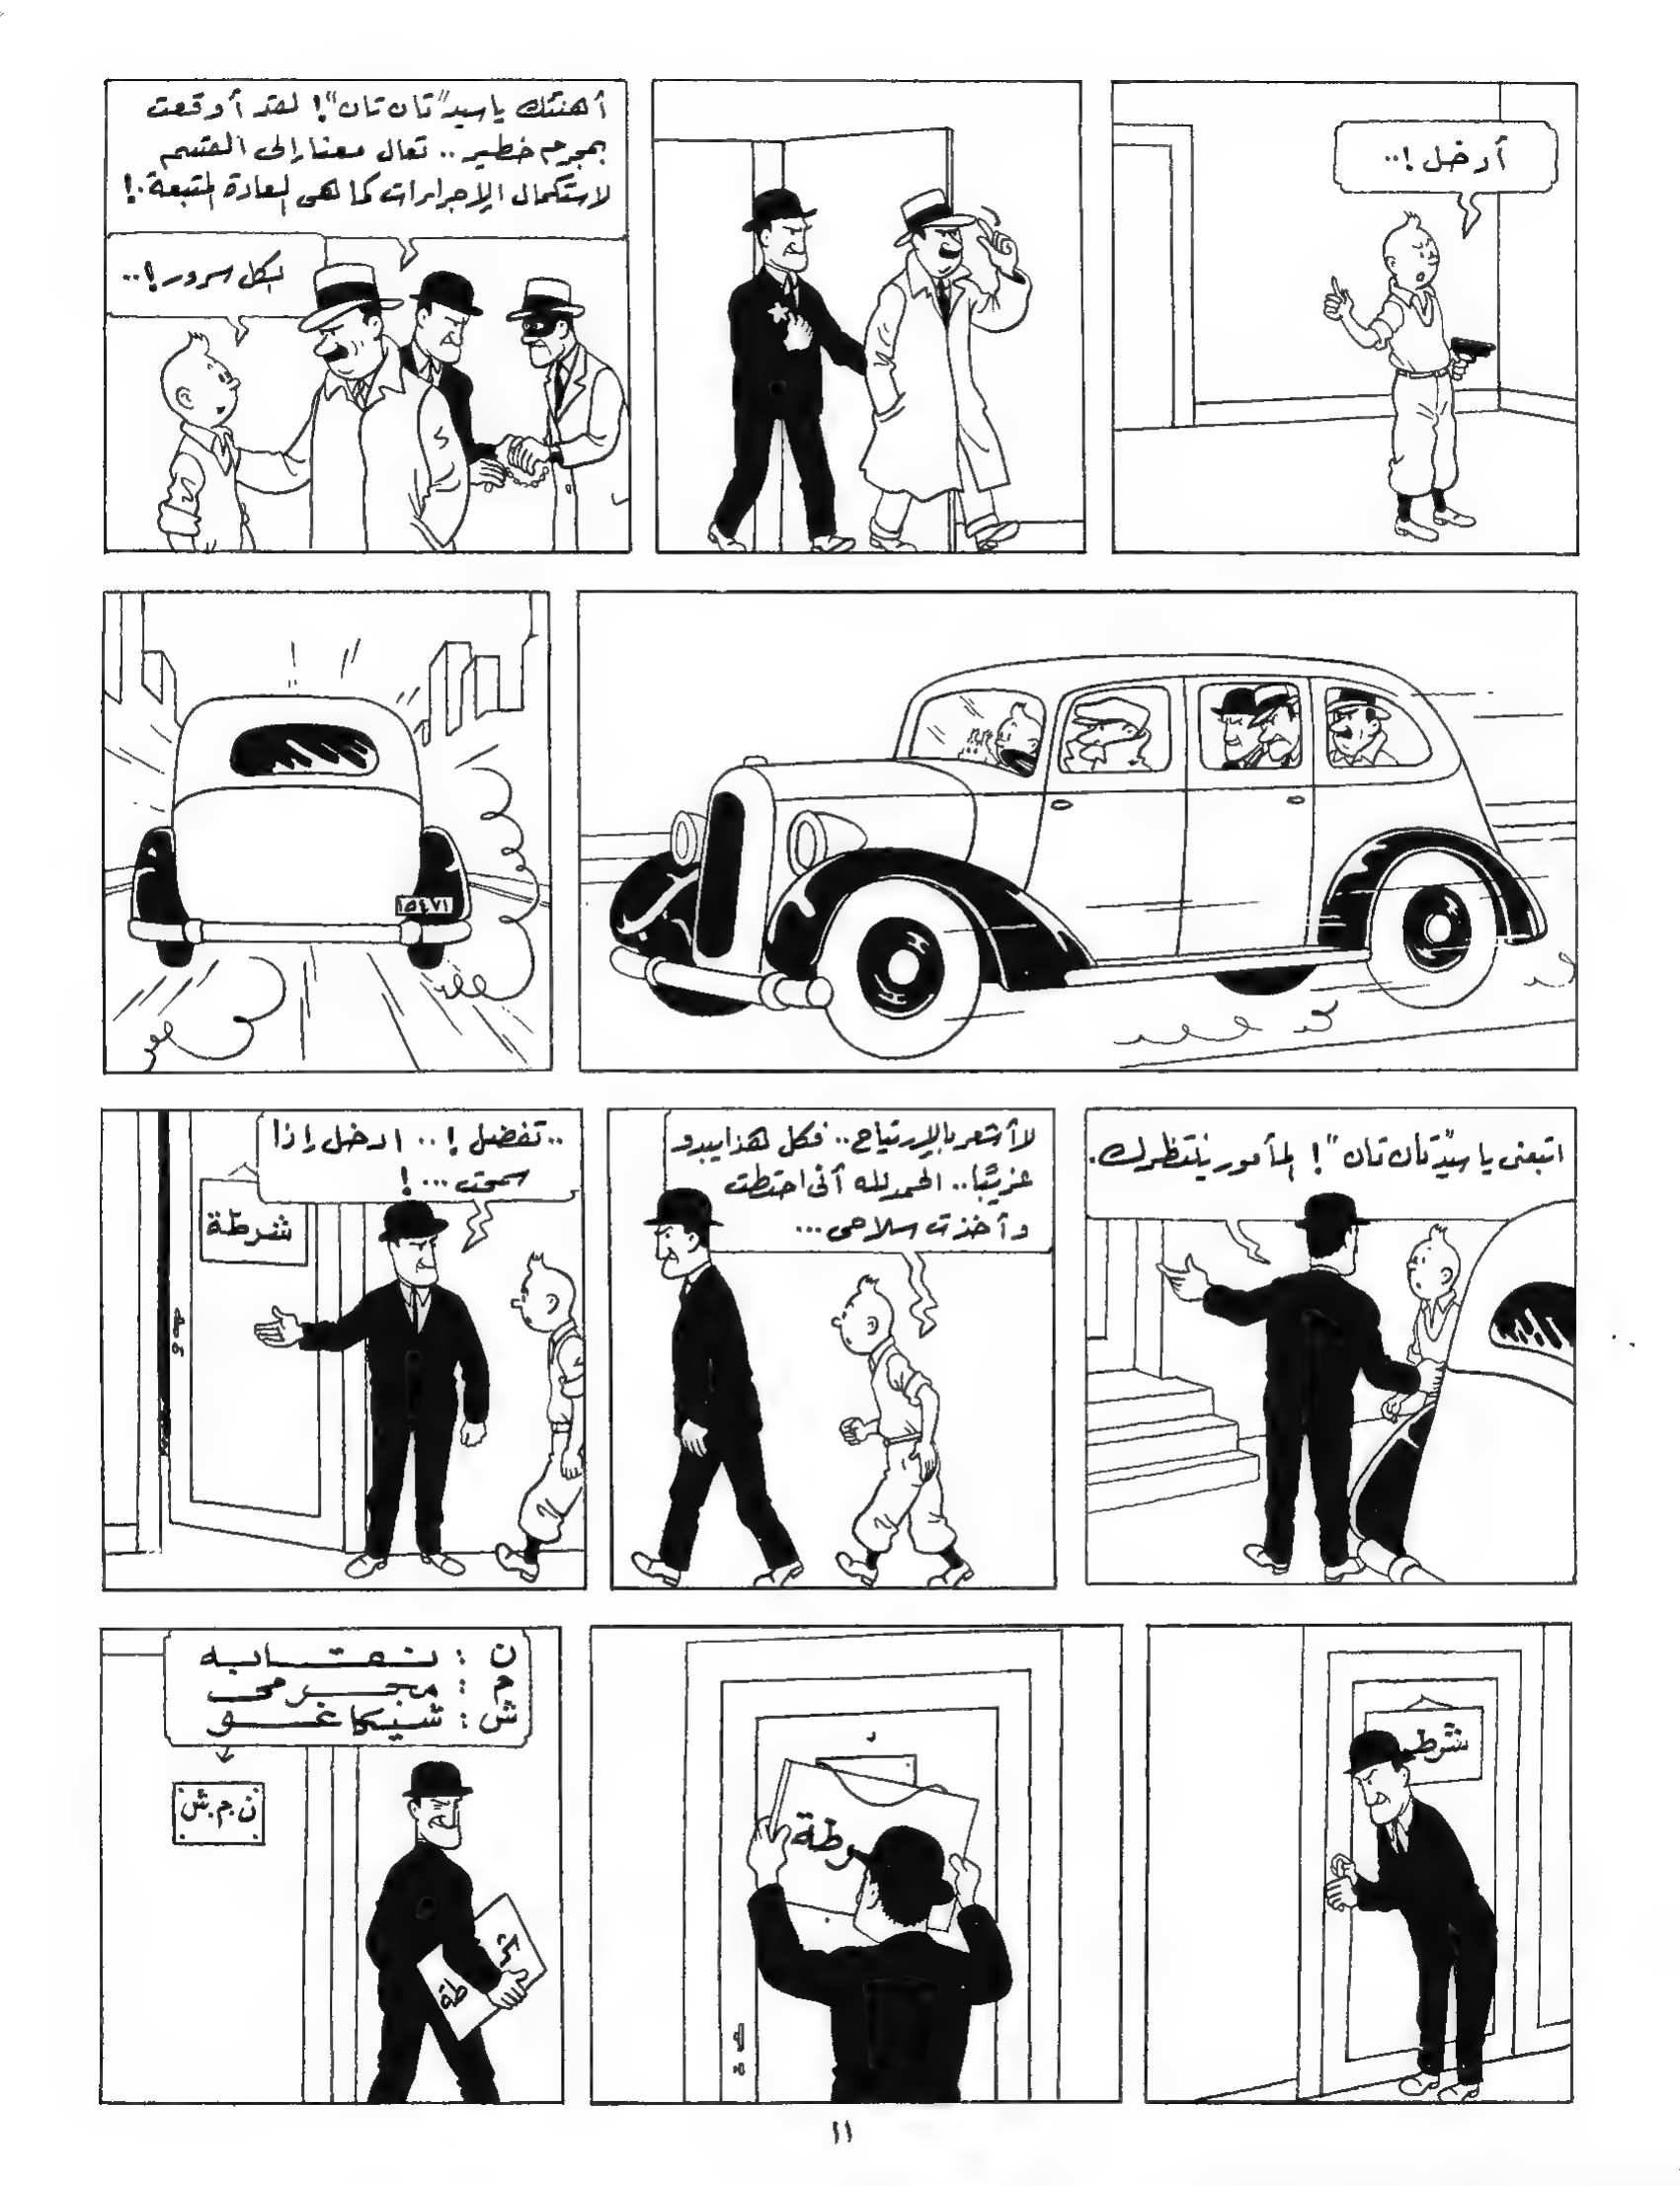 أدخل !..
أهنئك يا سيد "تان تان"! لقد أوقعت
بمجرم خطير.. تعال معنا إلى القسم
لاستكمال الإجراءات كما هى العادة المتبعة.!
بكل سرور !..
١٥٤٧١
اتبعنى يا سيد "تان تان" ! المأمور ينتظرك.
لا أشعر بالإرتياح.. فكل هذا يبدو
غريبًا.. الحمد لله أنى احتطت
وأخذت سلاحى...
..تفضل !.. ادخل إذا
سمحت ...!
شرطة
شرطـ
ـرطة
ن : نـقـــابـه
م : مجـرمى
ش : شيـكاغـــو
ن.م.ش
شر
طة
١١